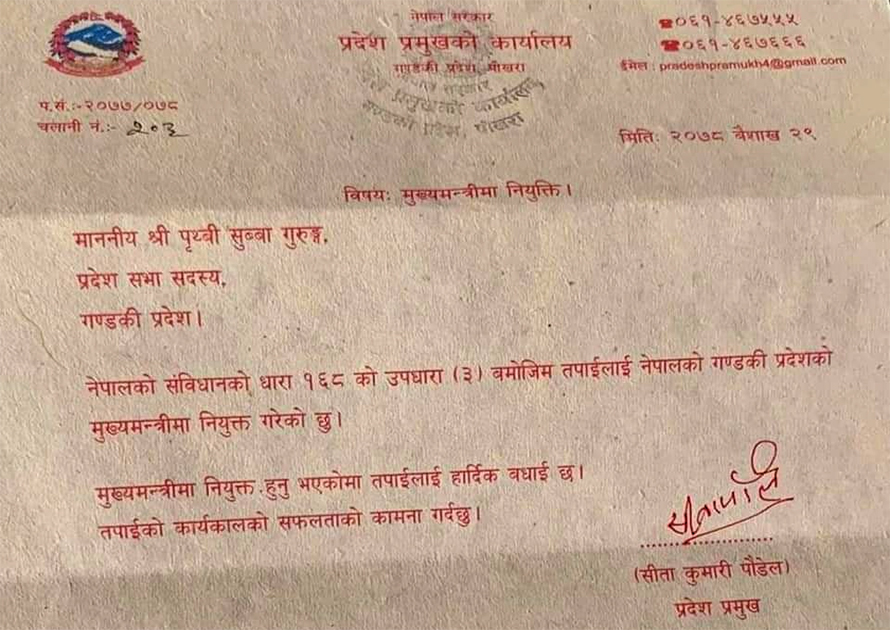 नेपाल सरकार
प्रदेश प्रमुखको कार्यालय
गण्डकी प्रदेश, पोखरा
नेपाल सरकार
प्रदेश प्रमुखको कार्यालय
गण्डकी प्रदेश, पोखरा
☎०६१-४६७५५५
☎०६१-४६७६६६
ईमेल : pradeshpramukh4@gmail.com
प.सं.:-२०७७/०७८
चलानी नं.:- २०३
मिति: २०७८ बैशाख २९
विषय: मुख्यमन्त्रीमा नियुक्ति।
माननीय श्री पृथ्वी सुब्बा गुरुङ्ग,
प्रदेश सभा सदस्य,
गण्डकी प्रदेश।
नेपालको संविधानको धारा १६८ को उपधारा (३) बमोजिम तपाईलाई नेपालको गण्डकी प्रदेशको
मुख्यमन्त्रीमा नियुक्त गरेको छु।
मुख्यमन्त्रीमा नियुक्त हुनु भएकोमा तपाईलाई हार्दिक बधाई छ।
तपाईको कार्यकालको सफलताको कामना गर्दछु।
(सीता कुमारी पौडेल)
प्रदेश प्रमुख